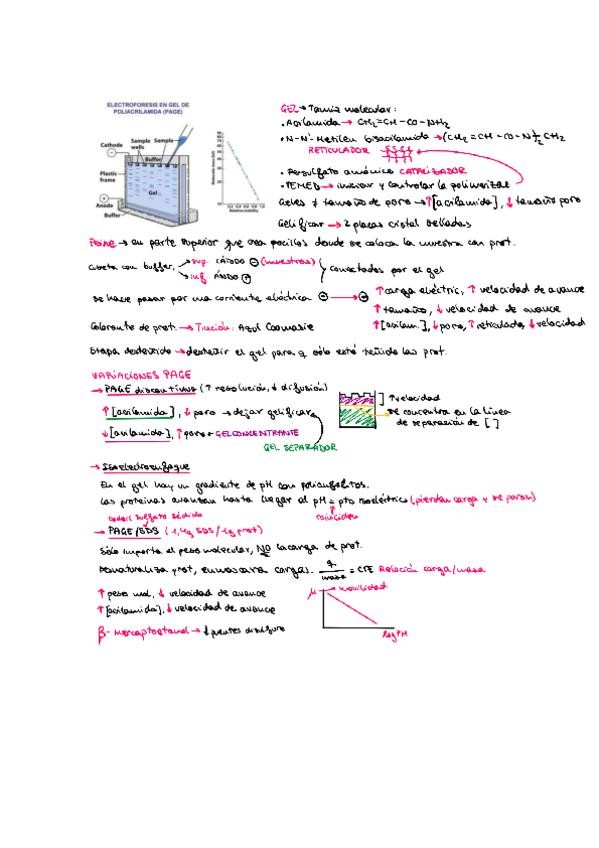 ELECTROFORESIS EN GEL DE
POLIACRILAMIDA (PAGE)
Cathode
Sample wells
Sample
Buffer
Plastic frame
Gel
Anode
Buffer
Relative mobility
GEL → Tamiz molecular:
• Acrilamida → CH₂=CH-CO-NH₂
• N-N'-Metilen bisacrilamida → (CH₂=CH-CO-N)½ CH₂
RETICULADOR
• Persulfato amónico CATALIZADOR
• TEMED → iniciar y controlar la polimerizac
Geles ≠ tamaño de poro → ↑[acrilamida], ↓ tamaño poro
Gelificar → 2 placas cristal selladas
Peine → en parte superior que crea pocillos donde se coloca la muestra con prot.
Cubeta con buffer
sup. cátodo ⊖ (muestras)
inf ánodo ⊕
conectados por el gel
Se hace pasar por una corriente eléctrica ⊖ → ⊕
↑ carga eléctric, ↑ velocidad de avance
↑ tamaño, ↓ velocidad de avance
↑[acrilam.], ↓ poro, ↑ reticulado, ↓ velocidad
Colorante de prot. → Tinción: Azul Coomasie
Etapa desteñido → desteñir el gel para q sólo esté teñido las prot.
VARIACIONES PAGE
→ PAGE discontinuo (↑ resolución, ↓ difusión)
↑ [acrilamida], ↓ poro → dejar gelificar
↓ [acrilamida], ↑ poro → GEL CONCENTRANTE
GEL SEPARADOR
↑ velocidad
se concentra en la línea
de separación de [ ]
→ Isoelectroenfoque
En el gel hay un gradiente de pH con polianfolitos.
Las proteínas avanzan hasta llegar al pH = pto isoeléctrico (pierden carga y se paran)
coinciden
dodecil sulfato sódico
→ PAGE/SDS (1,4g SDS/1g prot)
Sólo importa el peso molecular, NO la carga de prot.
Desnaturaliza prot, enmascara cargas. q/masa = CTE Relación carga/masa
↑ peso mol, ↓ velocidad de avance
↑ [acrilamida], ↓ velocidad de avance
β-Mercaptoetanol → ↓ puentes disulfuro
μ → movilidad
log PM